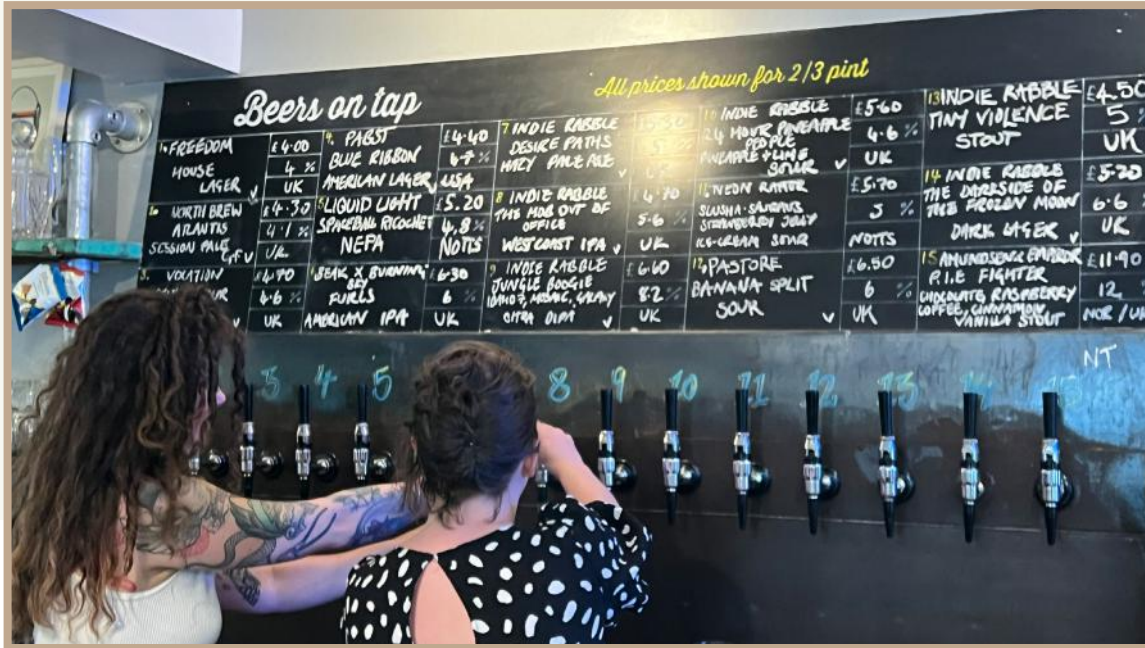 Beers on tap
All prices shown for 2/3 pint
1. FREEDOM
HOUSE
LAGER
£4.00
4 %
UK
2. NORTH BREW
ATLANTIS
SESSION PALE
GF V
£4.30
4.1 %
UK
3. VOCATION
£4.70
4.6 %
UK
4. PABST
BLUE RIBBON
AMERICAN LAGER
£4.40
%
USA
5 LIQUID LIGHT
SPACEBALL RICOCHET
NEPA
£5.20
4.8 %
NOTTS
BEAK X BURNING
SKY
FURLS
AMERICAN IPA
£6.30
6 %
UK
7 INDIE RABBLE
DESIRE PATHS
HAZY PALE ALE
8 INDIE RABBLE
THE MOB OUT OF
OFFICE
WEST COAST IPA
£4.70
5.6 %
UK
9 INDIE RABBLE
JUNGLE BOOGIE
IDAHO 7, MOSAIC, GALAXY
CITRA DIPA
£6.60
8.2 %
UK
10 INDIE RABBLE
24 HOUR PINEAPPLE
PEOPLE
PINEAPPLE + LIME
SOUR
£5.60
4.6 %
UK
11 NEON RAPTOR
STRAWBERRY JELLY
ICE-CREAM SOUR
£5.70
5 %
NOTTS
12 PASTORE
BANANA SPLIT
SOUR
£6.50
6 %
UK
13 INDIE RABBLE
TINY VIOLENCE
STOUT
£4.50
5
UK
14 INDIE RABBLE
THE DARKSIDE OF
THE FROZEN MOON
DARK LAGER
£5.20
6.6
UK
15 AMUNDSEN & EMPEROR
P.I.E FIGHTER
CHOCOLATE, RASPBERRY
COFFEE, CINNAMON,
VANILLA STOUT
£11.90
12
NOR/UK
NT
3 4 5 8 9 10 11 12 13 14 15